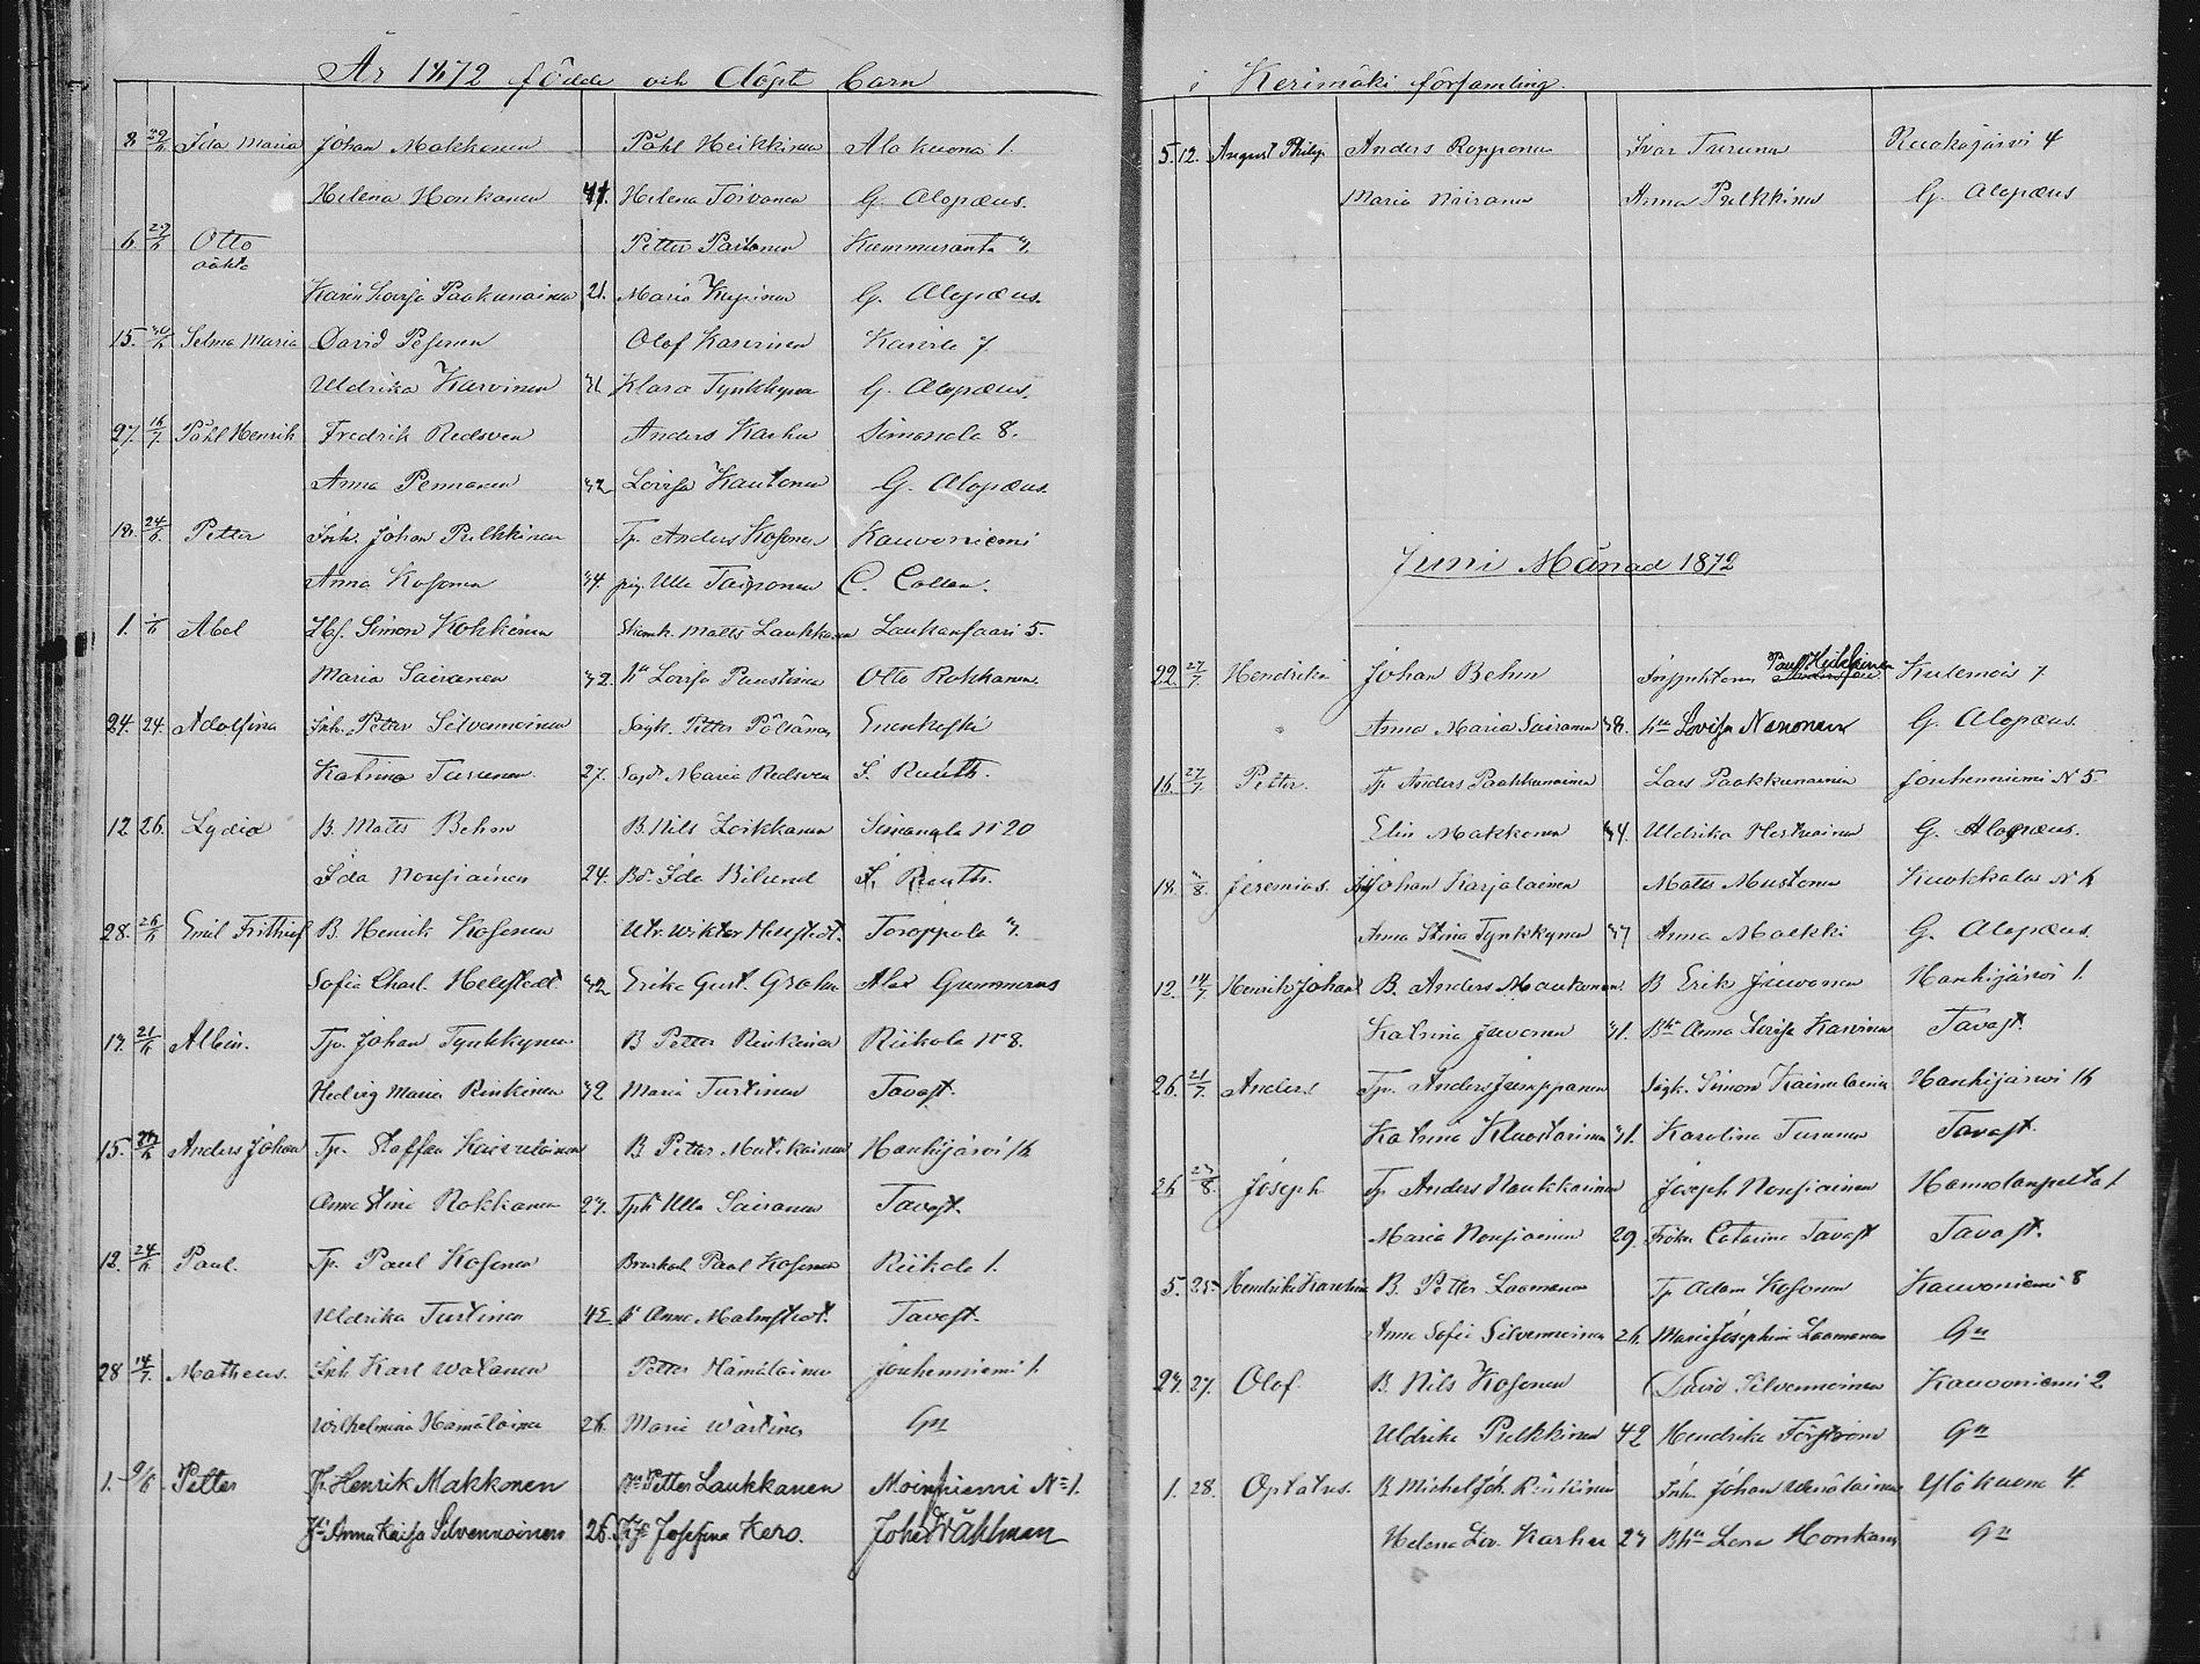 År 1872 födde och döpte barn
8 29/6 Ida Maria Johan Makkonen Påhl Heikkinen Ala kuona 1.
Helena Honkanen 41. Helena Toivanen G. Alopæus.
6. 29/6 Otto Petter Partanen Kummuranta 3.
oäkta
Karin Lovisa Paakunainen 21. Maria Kupinen G. Alopæus.
15. 30/6 Selma Maria David Pesonen Olof Karvinen Karvila 7
Uldrika Karvinen 31 Klara Tynkkynen G. Alopæus.
27. 16/7. Påhl Henrik Fredrik Redsven Anders Karhu Simanala 8.
Anna Pennanen 32 Lovisa Kautonen G. Alopæus.
18. 24/6. Petter Inh. Johan Pulkkinen Tp. Anders Kosonen Kauvoniemi
Anna Kosonen 34. pig. Ulla Taiponen C. Collan.
1. Abel Simon Kokkonen Matts Laukkanen Laukansaari 5.
Maria Sairanen 32. Lovisa Puustinen Otto Rokkanen
24. 24. Adolfina Inh. Petter Silvennoinen Petter Pöllänen Enonkoski
Katrina Turunen 27. Maria Redsven F. Ruuth.
12 26. Lydia B. Matts Behm B. Nils Loikkanen Simanala N:o 20
Ida Nousiainen 24. Bd. Ida Bilund F. Ruuth.
28. 26/6 Emil Frithiof B. Henrik Kosonen Wiktor Hellstedt. Toroppala 3.
Sofia Charl. Hellstedt 32 Erika Gust. Grahn Alex Gummerus
13. 21/6 Albin. Tp. Johan Tynkkynen B Petter Rinkinen Riikola N:o 8.
Hedvig Maria Rinkinen 32 Maria Turtinen Tavast.
15. Anders Johan Tp. Staffan Kaierulainen B Petter Mutikainen Hanhijärvi 16
Anna Stina Rokkanen 27. Ulla Sairanen Tavast.
12. 24/6 Paul. Tp. Paul Kosonen Paul Kosonen Riikola 1.
Uldrika Turtinen 42 Anna Malmstedt. Tavast.
28 14/7. Matheus. Inh Karl Watanen Petter Hämäläinen Jouhenniemi 1.
Wilhelmina Hämäläinen 26. Maria Wärtinen Gn
1. 9/6. Petter Tp. Henrik Makkonen Petter Laukkanen Moinniemi No 1.
Anna Kaisa Silvennoinen 26. Josefina Kero. Joh: Wåhlman
i Kerimäki församling.
5. 12. August Philip Anders Ropponen Ivar Turunen Ruokojärvi 4
Maria Noiranen Anna Pulkkinen G. Alopæus
Juni Månad 1872
22. 27/7 Hendrika Johan Behm Inspektoren Paul Heikkinen Kulennois 7
Anna Maria Sairanen 38. Lovisa Nenonen G. Alopæus.
16. 27/7. Petter. Tp Anders Paakkunainen Lars Paakkunainen Jouhenniemi N 5
Elin Makkonen 34. Uldrika Hertuainen G. Alopæus.
18. 3/8. Jeremias. Johan Karjalainen Matts Mustonen Kuokkala N 6
Anna Stina Tynkkynen 37 Anna Malkki G. Alopæus.
12. 14/7 Henrik Johan B. Anders Maukonen B Erik Juvonen Hanhijärvi 1.
Katrina Juvonen 31. Anna Lovisa Karvinen Tavast.
26. 21/7. Anders Tp. Anders Jumppanen Simon Kaierulainen Hanhijärvi 16
Katrina Kluostarinen 31. Karolina Turunen Tavast.
26 23/8. Joseph Tp Anders Haukkarinen Joseph Nousiainen Hannolanpelto 1
Maria Nousiainen 29. Fröken Catarina Tavast Tavast.
5. 25. Hendrika Karolina B. Petter Laamanen Tp Adam Kosonen Kauvoniemi 8
Anna Sofia Silvennoinen 26. Maria Josephina Laamanen Gn
23. 27. Olof. B. Nils Kosonen David Silvennoinen Kauvoniemi 2
Uldrika Pulkkinen 42 Hendrika Forsström Gn
1. 28. Optatus. B. Michel Joh. Rinkinen Inh. Johan Wenäläinen Ylökuona 4.
Helena Lov. Karhu 23 Lena Honkanen Gn